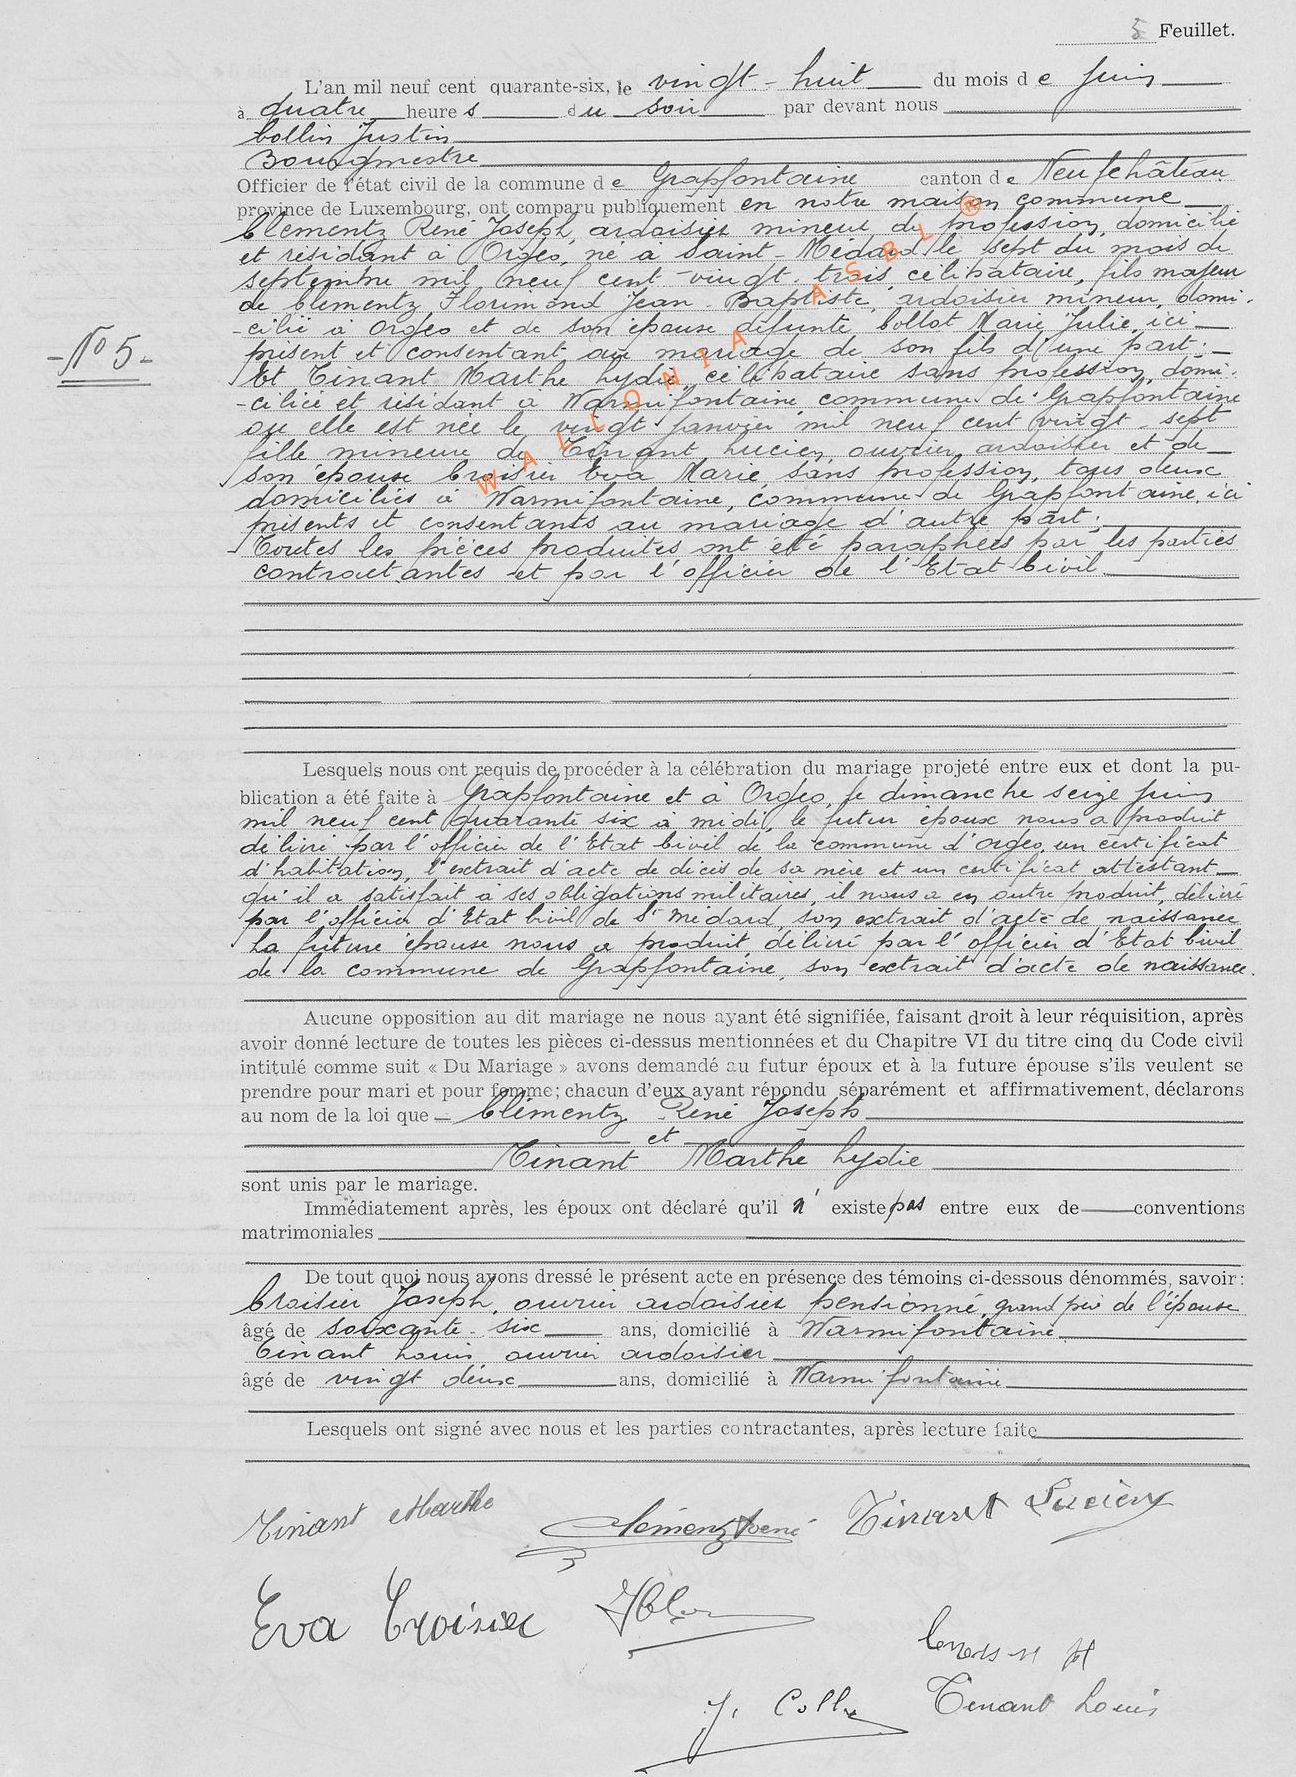 5 Feuillet.
L'an mil neuf cent quarante-six, le vingt-huit du mois de Juin
à quatre heures du soir par devant nous
Collin Justin
Bourgmestre
Officier de l'état civil de la commune de Grapfontaine canton de Neufchâteau
province de Luxembourg, ont comparu publiquement en notre maison commune
Clementz René Joseph, ardoisier mineur de profession, domicilié
et résidant à Orgeo, né à Saint-Médard le sept du mois de
septembre mil neuf cent-vingt trois, célibataire, fils majeur
de Clementz Florimond Jean-Baptiste, ardoisier mineur, domi-
-cilié à Orgeo et de son épouse défunte Collot Marie Julie, ici
présent et consentant au mariage de son fils d'une part;
-N° 5-
Et Tinant Marthe Lydie, célibataire sans profession, domi-
-ciliée et résidant à Warmifontaine, commune de Grapfontaine
où elle est née le vingt janvier mil neuf cent vingt-sept
fille mineure de Tinant Lucien, ouvrier ardoisier et de
son épouse Croisier Eva Marie, sans profession, tous deux
domiciliés à Warmifontaine, commune de Grapfontaine, ici
présents et consentants au mariage d'autre part;
Toutes les pièces produites ont été paraphées par les parties
contractantes et par l'officier de l'Etat Civil
WALLONIA ASBL ®
Lesquels nous ont requis de procéder à la célébration du mariage projeté entre eux et dont la pu-
blication a été faite à Grapfontaine et à Orgeo, le dimanche seize juin
mil neuf cent quarante six à midi, le futur époux nous a produit
délivré par l'officier de l'Etat Civil de la commune d'Orgeo, un certificat
d'habitation, l'extrait d'acte de décès de sa mère et un certificat attestant
qu'il a satisfait à ses obligations militaires, il nous a en outre produit, délivré
par l'officier d'Etat Civil de St Médard, son extrait d'acte de naissance
La future épouse nous a produit délivré par l'officier d'Etat Civil
de la commune de Grapfontaine, son extrait d'acte de naissance.
Aucune opposition au dit mariage ne nous ayant été signifiée, faisant droit à leur réquisition, après
avoir donné lecture de toutes les pièces ci-dessus mentionnées et du Chapitre VI du titre cinq du Code civil
intitulé comme suit « Du Mariage » avons demandé au futur époux et à la future épouse s'ils veulent se
prendre pour mari et pour femme; chacun d'eux ayant répondu séparément et affirmativement, déclarons
au nom de la loi que - Clémentz René Joseph
et
Tinant Marthe Lydie
sont unis par le mariage.
Immédiatement après, les époux ont déclaré qu'il n' existe pas entre eux de conventions
matrimoniales
De tout quoi nous avons dressé le présent acte en présence des témoins ci-dessous dénommés, savoir:
Croisier Joseph, ouvrier ardoisier pensionné, grand père de l'épouse
âgé de soixante-six ans, domicilié à Warmifontaine
Tinant Louis ouvrier ardoisier
âgé de vingt deux ans, domicilié à Warmifontaine
Lesquels ont signé avec nous et les parties contractantes, après lecture faite
Tinant Marthe Clémentz René Tinant Lucien
Eva Croisier
J. Collin Tinant Louis